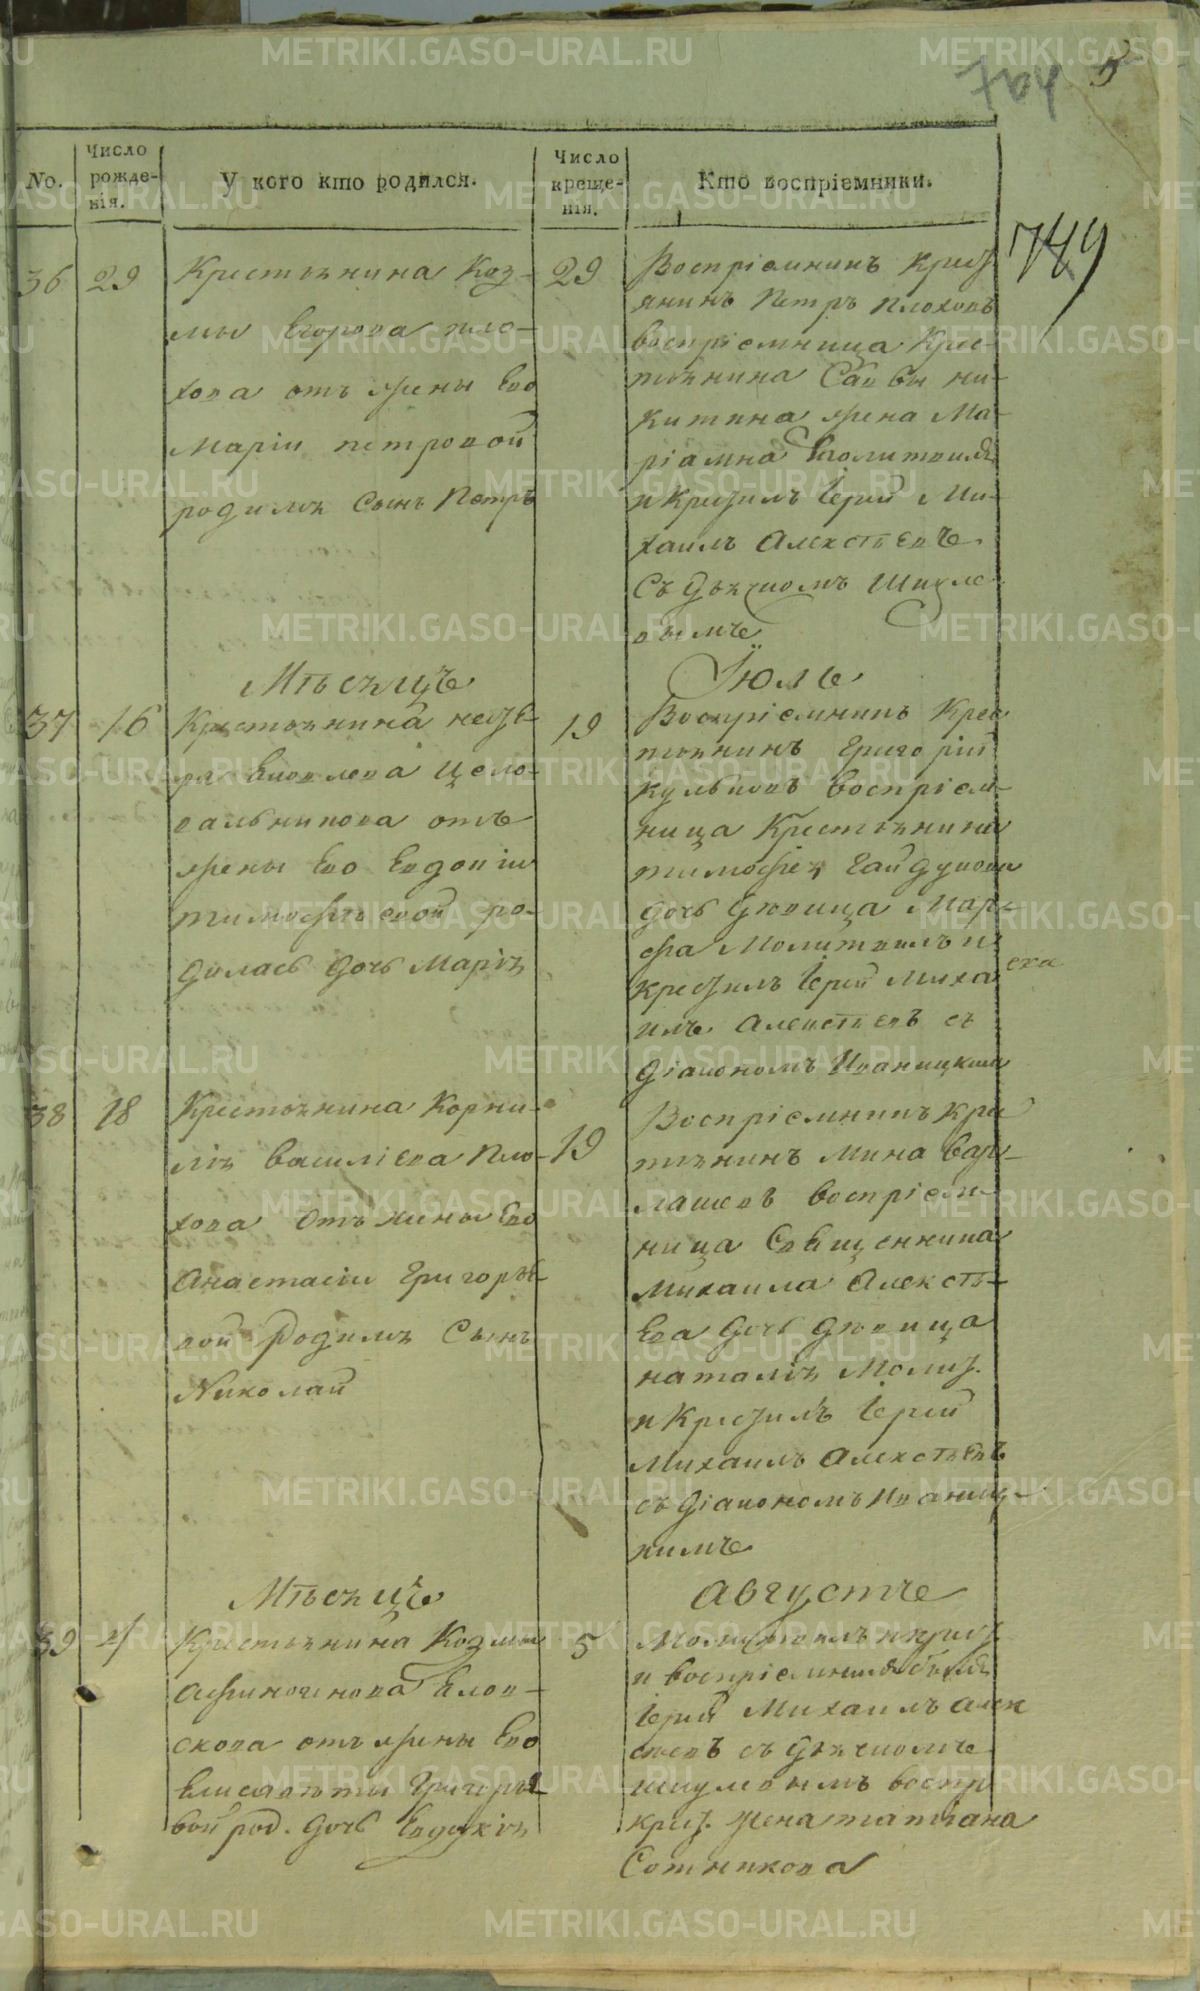 5
704
749
No.
Число рожденія.
У кого кто родился.
Число крещенія.
Кто воспріемники.
36
29
Крестьянина Коз-
мы Егорова Пло-
хова отъ жены Ево
Маріи Петровой
родился Сынъ Петръ
29
Воспріемникъ Крест
янинъ Петръ Плоховъ
воспріемница Крес-
тьянина Саввы Ни-
китина жена Ма-
ріамна
и Крестилъ Іерей Ми-
хаилъ Алексѣевъ
Съ Дьячкомъ
Мѣсяцъ
Іюль
37
16
Крестьянина
Яковлева Цело-
вальникова отъ
жены Ево Евдокіи
Тимофѣевой ро-
дилась дочь Марія
19
Воспріемникъ Крес
тьянинъ Григорій
Кульковъ воспріем-
ница Крестьянина
Тимофея
дочь Девица Мар-
фа Молитвилъ и
крестилъ Іерей Миха
илъ Алексѣевъ съ
діакономъ Иваницкимъ
38
18
Крестьянина Корни-
лія Василіева Пло-
хова Отъ жены Ево
Анастасіи Григорье-
вой Родился Сынъ
Николай
19
Воспріемникъ Кре
тьянинъ Мина Вар-
лашевъ воспріем-
ница Священника
Михаила Алексѣ-
ева дочь девица
Наталія Молит.
и Крестилъ Іерей
Михаилъ Алексѣевъ
съ діакономъ Иваниц-
кимъ
Мѣсяцъ
Августъ
39
4
Крестьянина Козмы
Афиногенова
отъ жены Ево
Елисаветы Григорье
вой род. дочь Евдокія
5
Молитвилъ и крест.
и воспріемникъ былъ
Іерей Михаилъ Алек
сѣевъ съ Дьячкомъ
воспр.
крест. жена Татіана
Сотникова
METRIKI.GASO-URAL.RU